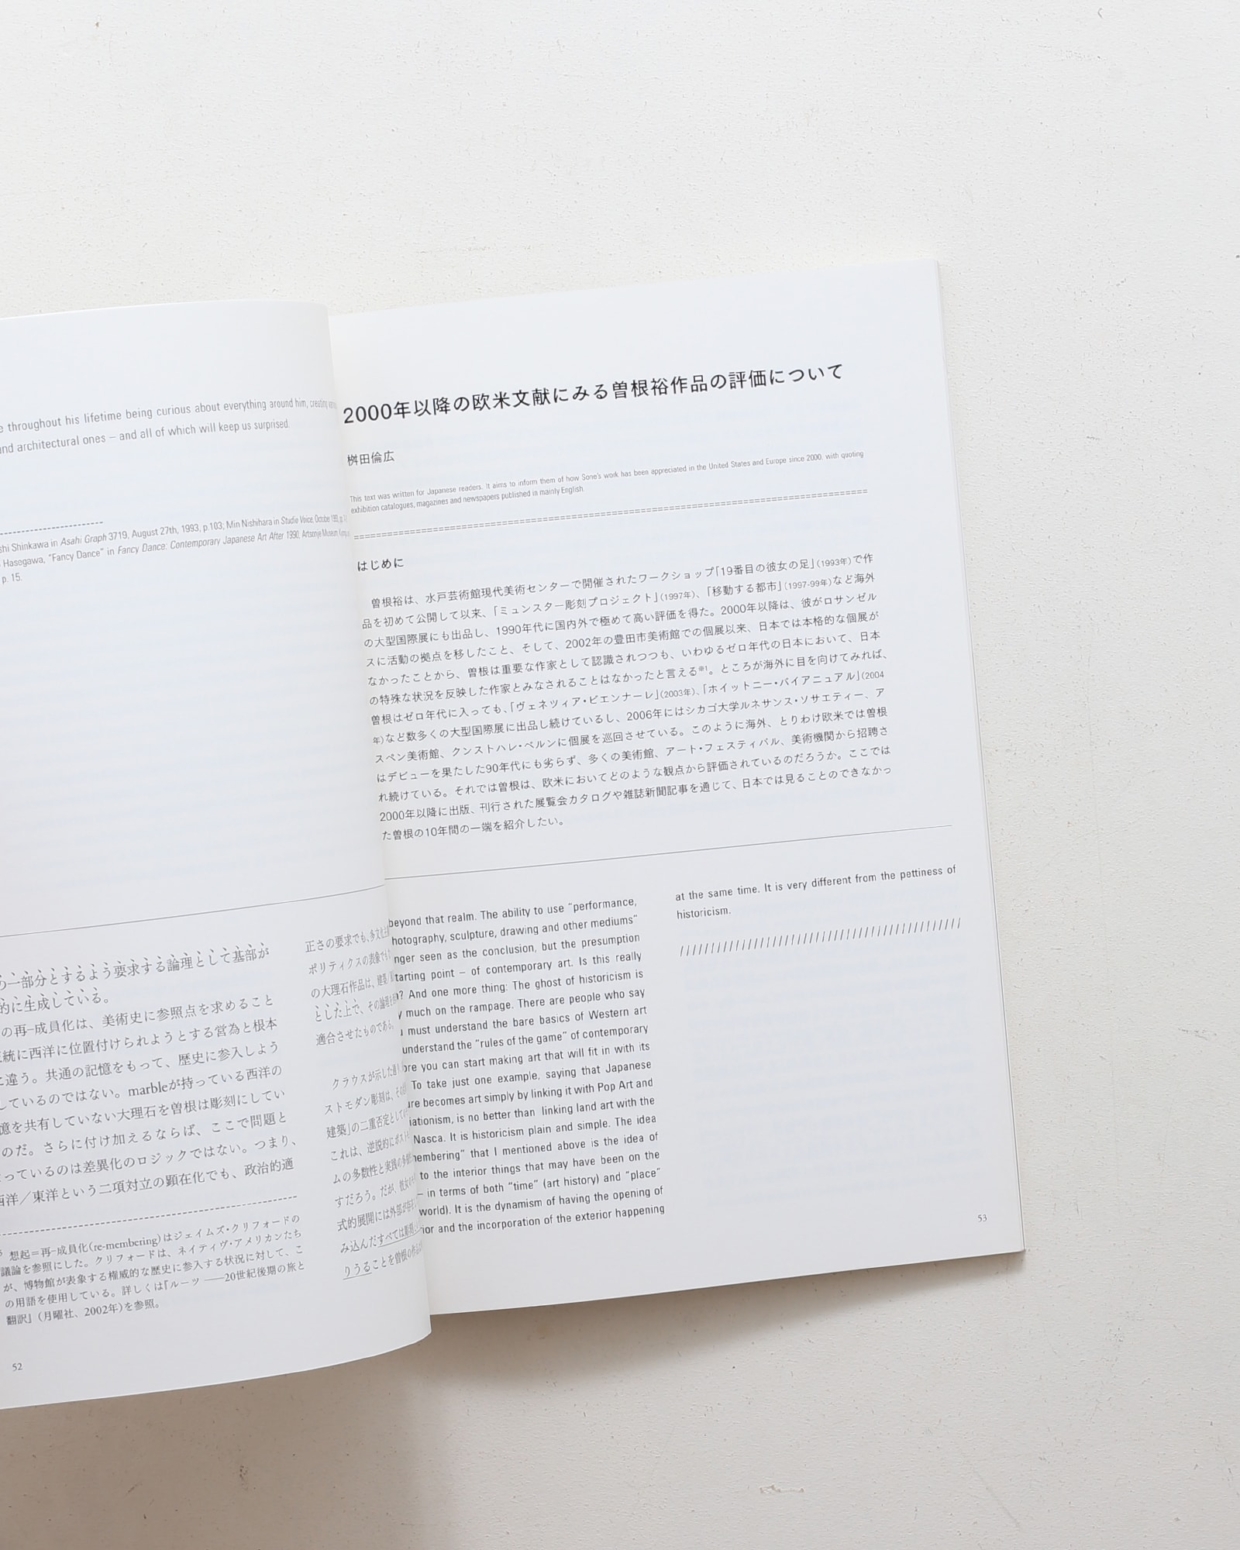 throughout his lifetime being curious about everything around him, creating
and architectural ones – and all of which will keep us surprised.
Shinkawa in Asahi Graph 3719, August 27th, 1993, p.103; Min Nishihara in Studio Voice October
Hasegawa, "Fancy Dance" in Fancy Dance: Contemporary Japanese Art After 1990, Artsonje Museum
p. 15.
の一部分とするよう要求する論理として基部が
的に生成している。
の再−成員化は、美術史に参照点を求めること
統に西洋に位置付けられようとする営為と根本
違う。共通の記憶をもって、歴史に参入しよう
しているのではない。marbleが持っている西洋の
憶を共有していない大理石を曽根は彫刻にしてい
のだ。さらに付け加えるならば、ここで問題と
っているのは差異化のロジックではない。つまり、
西洋／東洋という二項対立の顕在化でも、政治的適
想起＝再−成員化(re-membering)はジェイムズ・クリフォードの
議論を参照にした。クリフォードは、ネイティヴ・アメリカンたち
が、博物館が表象する権威的な歴史に参入する状況に対して、こ
の用語を使用している。詳しくは『ルーツ ——20世紀後期の旅と
翻訳』（月曜社、2002年）を参照。
52
正さの要求でも、
ポリティクスの表象
の大理石作品は、
とした上で、その論理
適合させたものである
クラウスが示した
ストモダン彫刻は、
建築」の二重否定として
これは、逆説的に
ムの多数性と
すだろう。だが
式的展開には外部が
み込んだすべては
りうることを曽根の
2000年以降の欧米文献にみる曽根裕作品の評価について
桝田倫広
This text was written for Japanese readers. It aims to inform them of how Sone's work has been appreciated in the United States and Europe since 2000, with quoting
exhibition catalogues, magazines and newspapers published in mainly English.
はじめに
曽根裕は、水戸芸術館現代美術センターで開催されたワークショップ「19番目の彼女の足」（1993年）で作
品を初めて公開して以来、「ミュンスター彫刻プロジェクト」（1997年）、「移動する都市」（1997-99年）など海外
の大型国際展にも出品し、1990年代に国内外で極めて高い評価を得た。2000年以降は、彼がロサンゼル
スに活動の拠点を移したこと、そして、2002年の豊田市美術館での個展以来、日本では本格的な個展が
なかったことから、曽根は重要な作家として認識されつつも、いわゆるゼロ年代の日本において、日本
の特殊な状況を反映した作家とみなされることはなかったと言える※1。ところが海外に目を向けてみれば、
曽根はゼロ年代に入っても、「ヴェネツィア・ビエンナーレ」（2003年）、「ホイットニー・バイアニュアル」（2004
年）など数多くの大型国際展に出品し続けているし、2006年にはシカゴ大学ルネサンス・ソサエティー、ア
スペン美術館、クンストハレ・ベルンに個展を巡回させている。このように海外、とりわけ欧米では曽根
はデビューを果たした90年代にも劣らず、多くの美術館、アート・フェスティバル、美術機関から招聘さ
れ続けている。それでは曽根は、欧米においてどのような観点から評価されているのだろうか。ここでは
2000年以降に出版、刊行された展覧会カタログや雑誌新聞記事を通じて、日本では見ることのできなかっ
た曽根の10年間の一端を紹介したい。
beyond that realm. The ability to use "performance,
hotography, sculpture, drawing and other mediums"
nger seen as the conclusion, but the presumption
tarting point – of contemporary art. Is this really
? And one more thing: The ghost of historicism is
much on the rampage. There are people who say
must understand the bare basics of Western art
understand the "rules of the game" of contemporary
ore you can start making art that will fit in with its
To take just one example, saying that Japanese
re becomes art simply by linking it with Pop Art and
iationism, is no better than linking land art with the
Nasca. It is historicism plain and simple. The idea
membering" that I mentioned above is the idea of
to the interior things that may have been on the
– in terms of both "time" (art history) and "place"
world). It is the dynamism of having the opening of
ior and the incorporation of the exterior happening
at the same time. It is very different from the pettiness of
historicism.
53